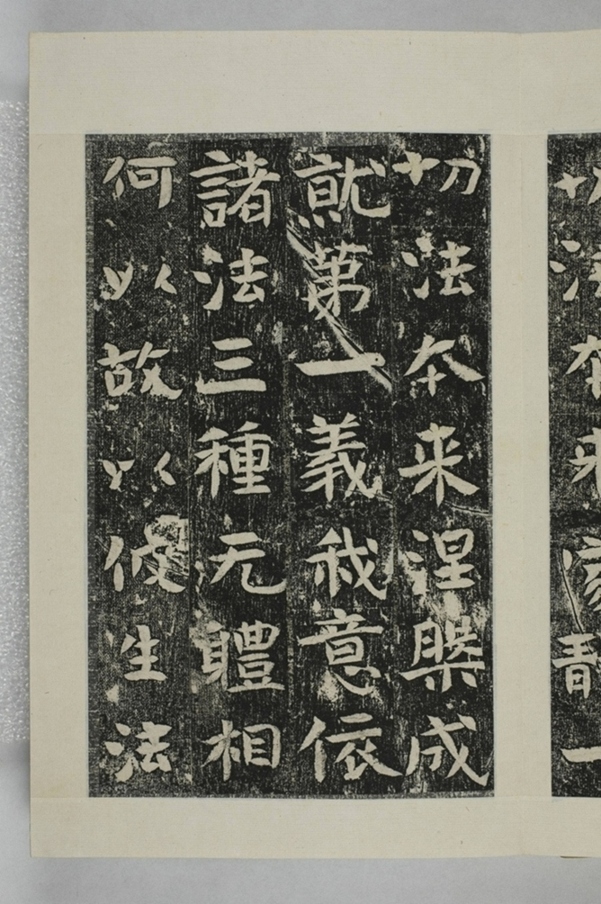 切法本来一
切法本来涅槃成
就第一義我意依
諸法三種无體相
何以故以彼生法